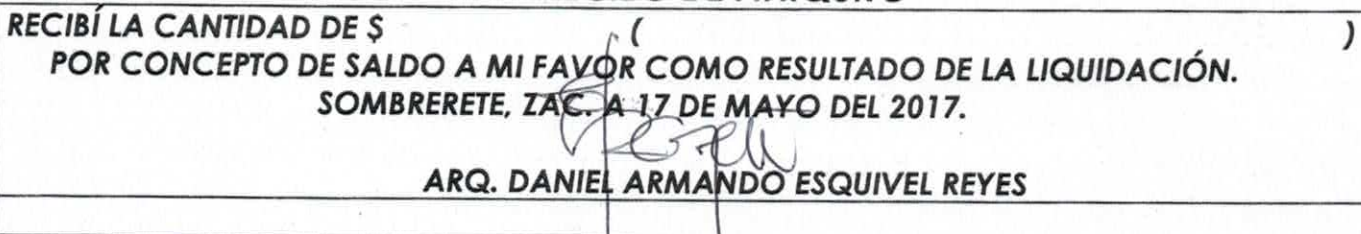 RECIBÍ LA CANTIDAD DE $ ( )
POR CONCEPTO DE SALDO A MI FAVOR COMO RESULTADO DE LA LIQUIDACIÓN.
SOMBRERETE, ZAC. A 17 DE MAYO DEL 2017.
ARQ. DANIEL ARMANDO ESQUIVEL REYES